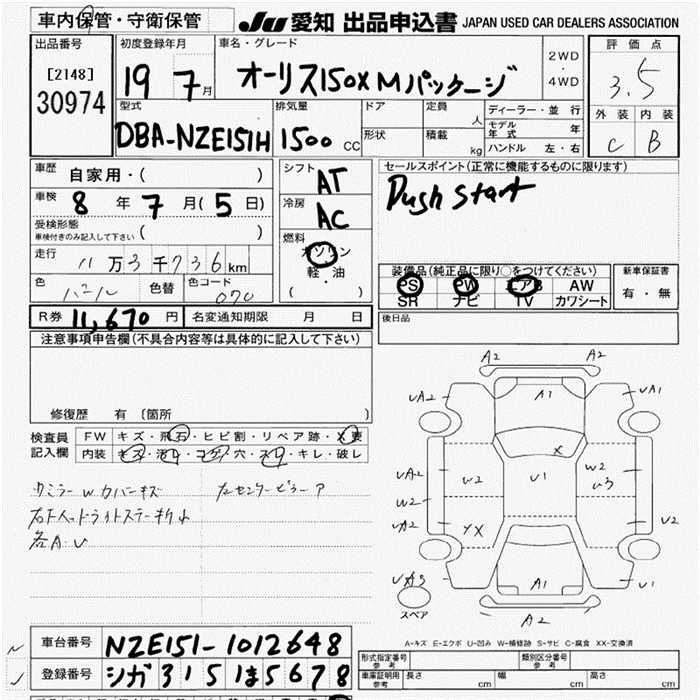 車内保管・守衛保管
JU 愛知 出品申込書 JAPAN USED CAR DEALERS ASSOCIATION
出品番号
[2148]
30974
初度登録年月
19 7月
車名・グレード
オーリス150X Mパッケージ
2WD
・
4WD
評価点
3.5
外装 内装
C B
型式
DBA-NZE151H
排気量
1500 CC
ドア
形状
定員 人
積載 kg
ディーラー・並行
モデル年式 年
ハンドル 左・右
車歴 自家用・( )
車検 8年7月(5日)
受検形態
車検付きのみ記入して下さい ( )
走行 11万3千736km
色 パール 色替 色コード 070
シフト AT
冷房 AC
燃料
ガソリン
軽・油
( )
セールスポイント(正常に機能するものに限ります)
Push Start
装備品(純正品に限り○をつけてください)
PS PW エアB AW
SR ナビ TV カワシート
新車保証書
有・無
R券 11,670円 名変通知期限 月 日
後日品
注意事項申告欄(不具合内容等は具体的に記入して下さい)
修復歴 有 (箇所 )
検査員記入欄
FW キズ・飛石・ヒビ割・リペア跡・X要
内装 キズ・汚れ・コゲ・穴・スレ・キレ・破レ
右ミラーWカバーキズ 左センターピラーA
各A.U
A2 A2
UA2 A1 UA1
X
UA2 U2 U1 W2 U3
W2
UA2 YX U2
UA3 A1 U1
A2
スペア
A-キズ E-エクボ U-凹み W-補修跡 S-サビ C-腐食 XX-交換済
車台番号 NZE151-1012648
登録番号 シガ 315 ほ5678
形式指定番号 参考 類別区分番号 参考
車庫証明用 参考 長さ cm 幅 cm 高さ cm